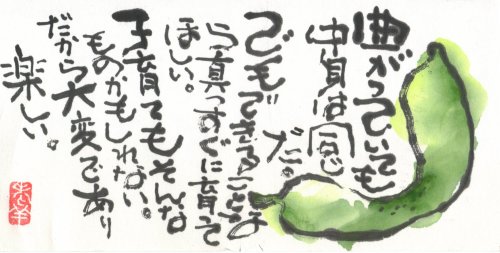 曲がっていても
中身は同じ
だ。
でもできることな
ら真っすぐに育って
ほしい。
子育てもそんな
ものかもしれない。
だから大変であり
楽しい。